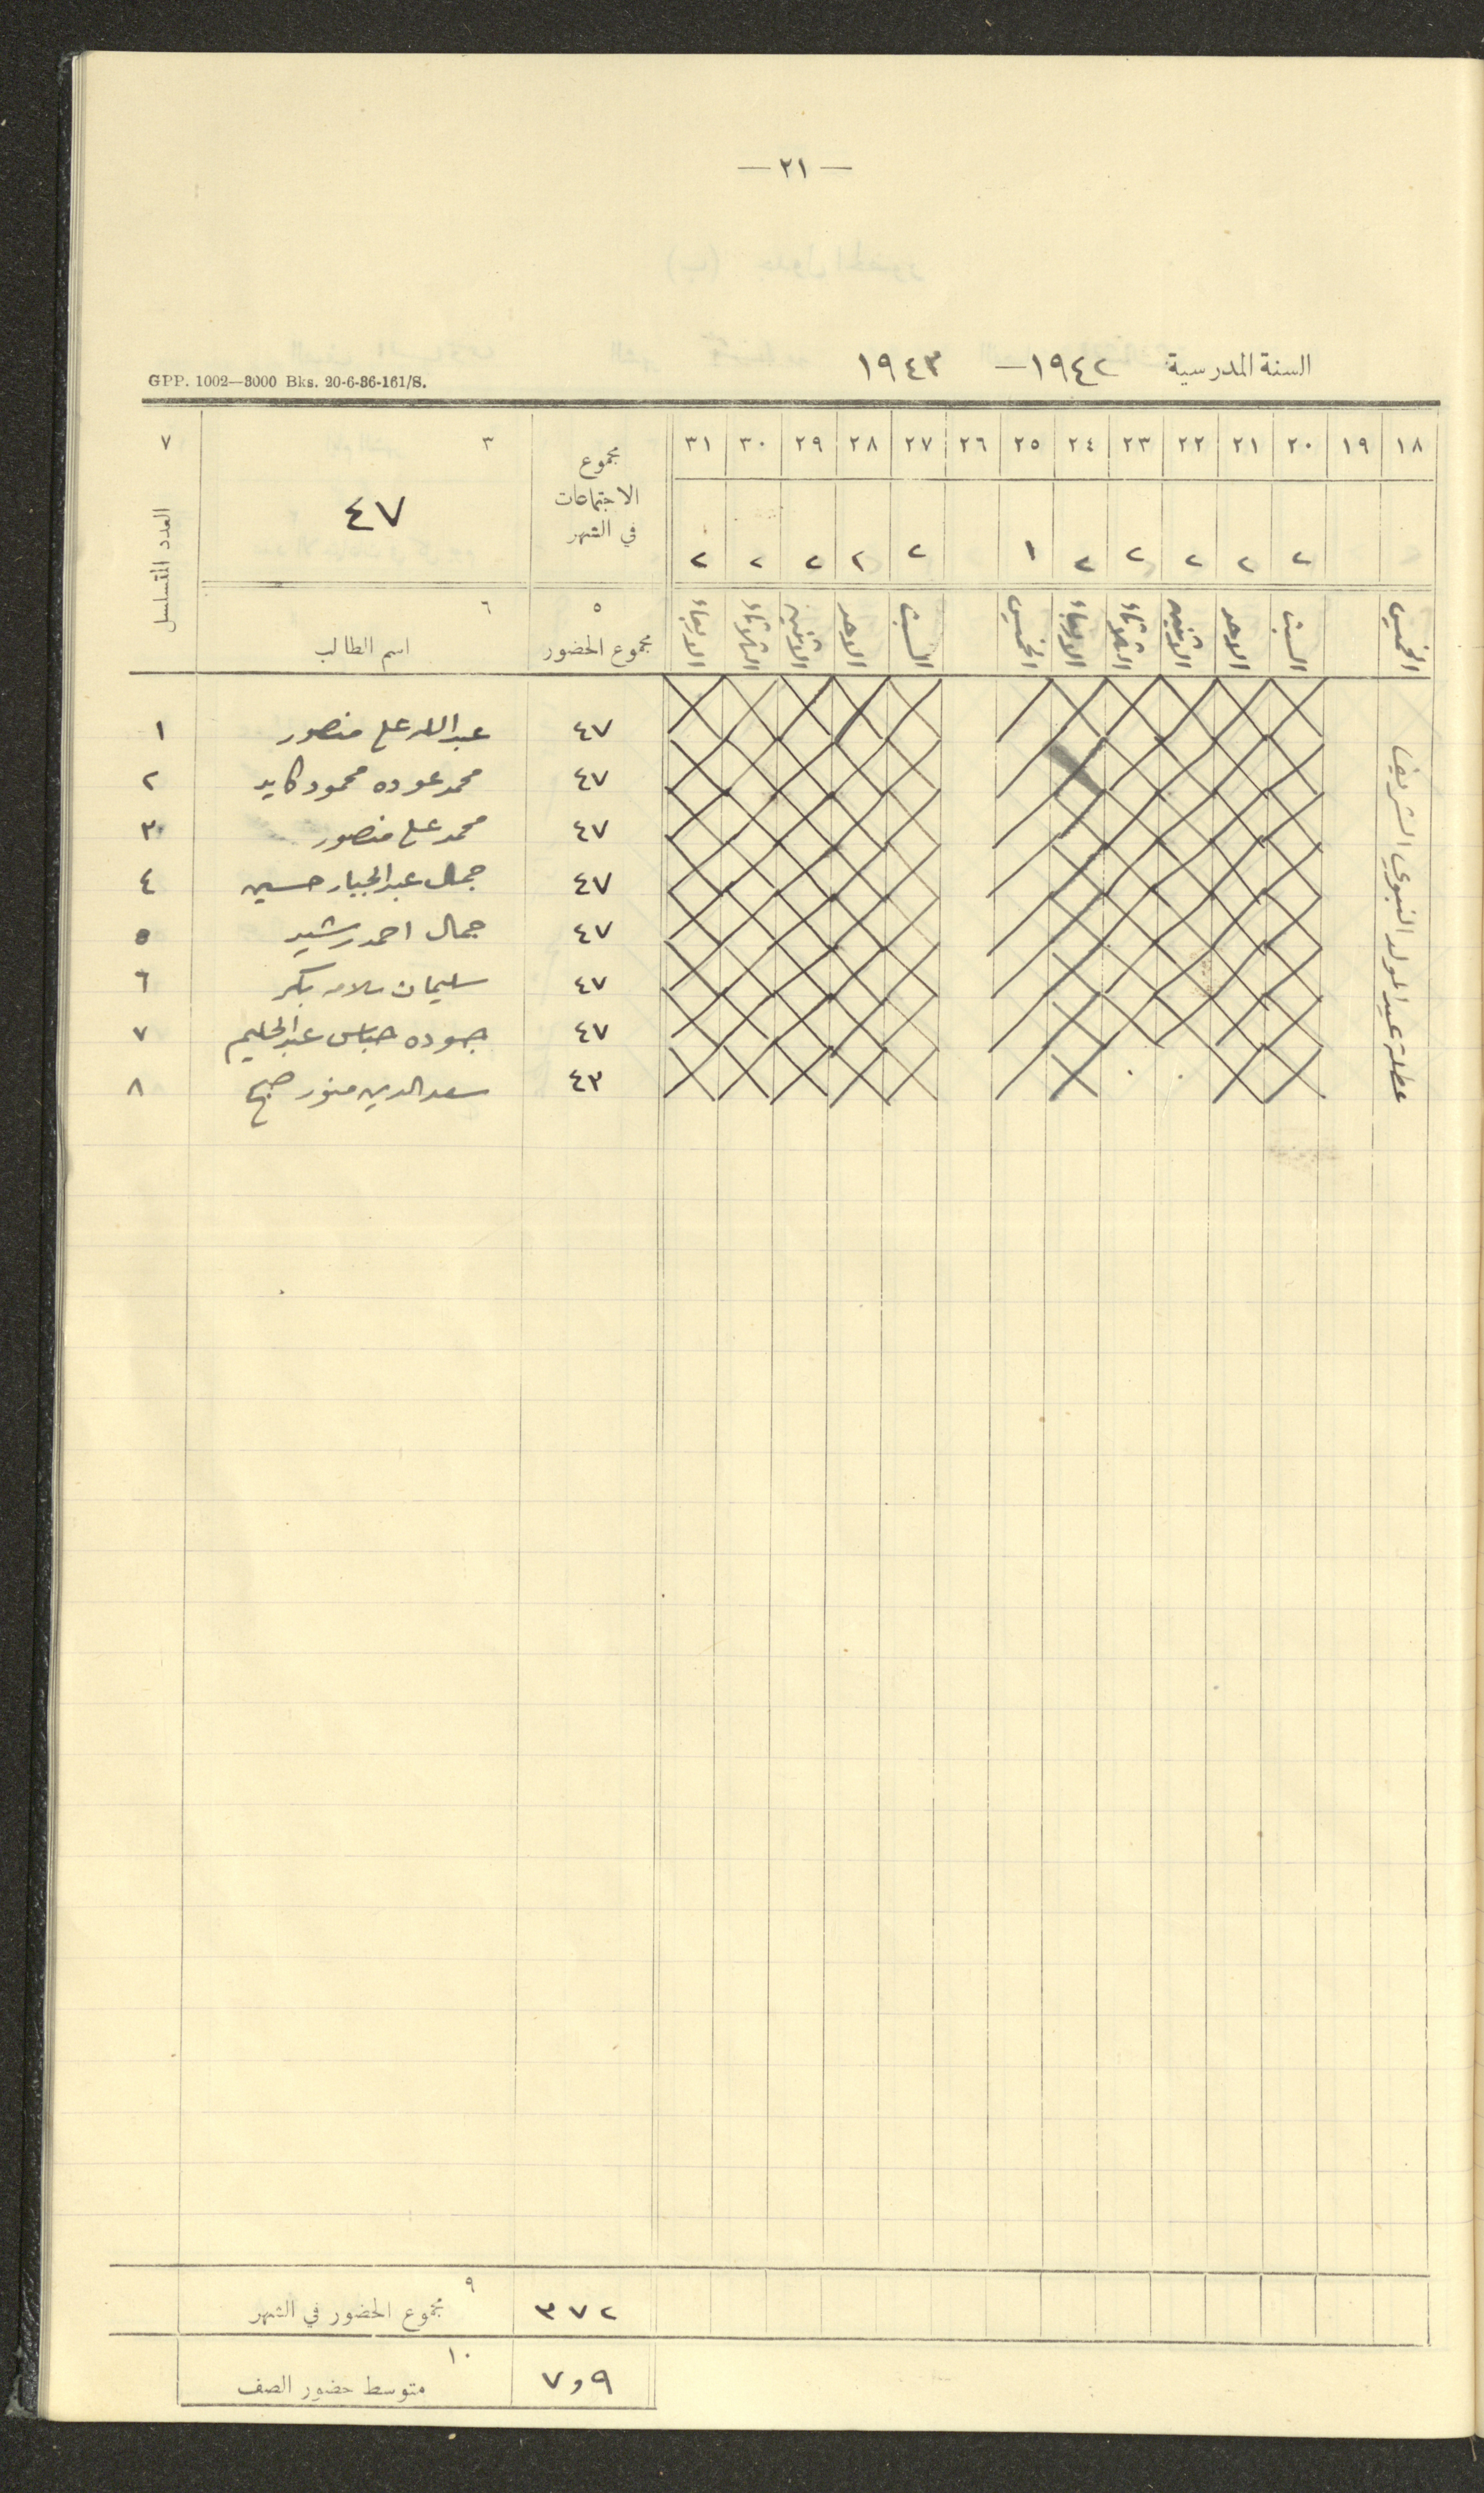 — ٢١ —
السنة المدرسية ١٩٤٢ — ١٩٤٣
GPP. 1002—3000 Bks. 20-6-36-161/S.
١٨ ١٩ ٢٠ ٢١ ٢٢ ٢٣ ٢٤ ٢٥ ٢٦ ٢٧ ٢٨ ٢٩ ٣٠ ٣١ مجموع الاجتماعات في الشهر ٣ ٧
٢ ٢ ٢ ٢ ٢ ١ ٢ ٢ ٢ ٢ ٢ ٤٧ العدد المتسلسل
الخميس السبت الاحد الاثنين الثلاثاء الاربعاء الخميس السبت الاحد الاثنين الثلاثاء الاربعاء ٥ مجموع الحضور ٦ اسم الطالب
عطلة عيد المولد النبوي الشريف
٤٧ عبدالله علي منصور ١
٤٧ محمد عوده محمود كايد ٢
٤٧ محمد علي منصور ٣
٤٧ جمال عبدالجبار حسين ٤
٤٧ جمال احمد رشيد ٥
٤٧ سليمان سلامه بكر ٦
٤٧ جوده عباس عبدالحليم ٧
٤٣ سعدالدين منور صبح ٨
٣٧٢ ٩ مجموع الحضور في الشهر
٧٫٩ ١٠ متوسط حضور الصف